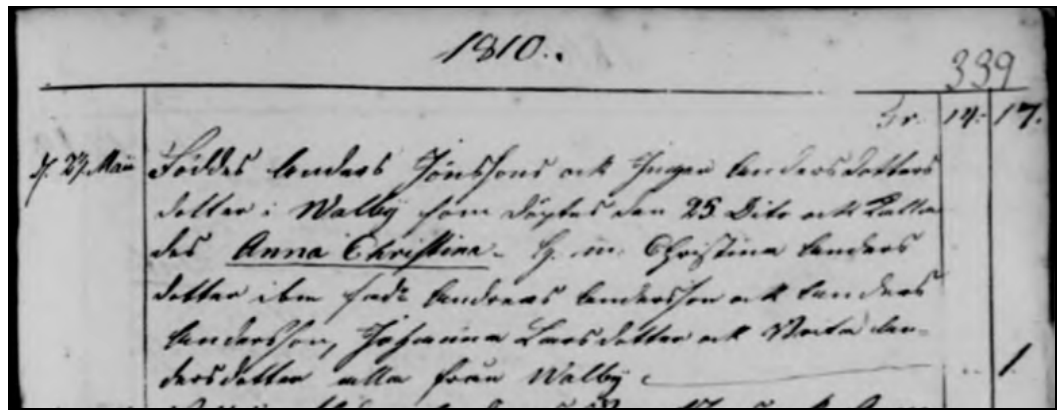 1810.
339
Tr. 14. 17.
d. 24. Maii Föddes Anders Jönssons ock Inger Andersdotters
dotter i Walby som döptes den 25 Dito ock Kalla
des Anna Christina. G. m. Christina Anders
dotter ibm fadr Andreas Andersson ock Anders
Andersson, Johanna Larsdotter ock Marta An=
dersdotter alla från Walby 1.